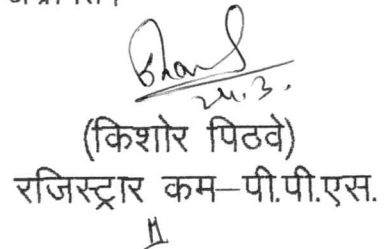 24.3.
(किशोर पिठवे)
रजिस्ट्रार कम–पी.पी.एस.